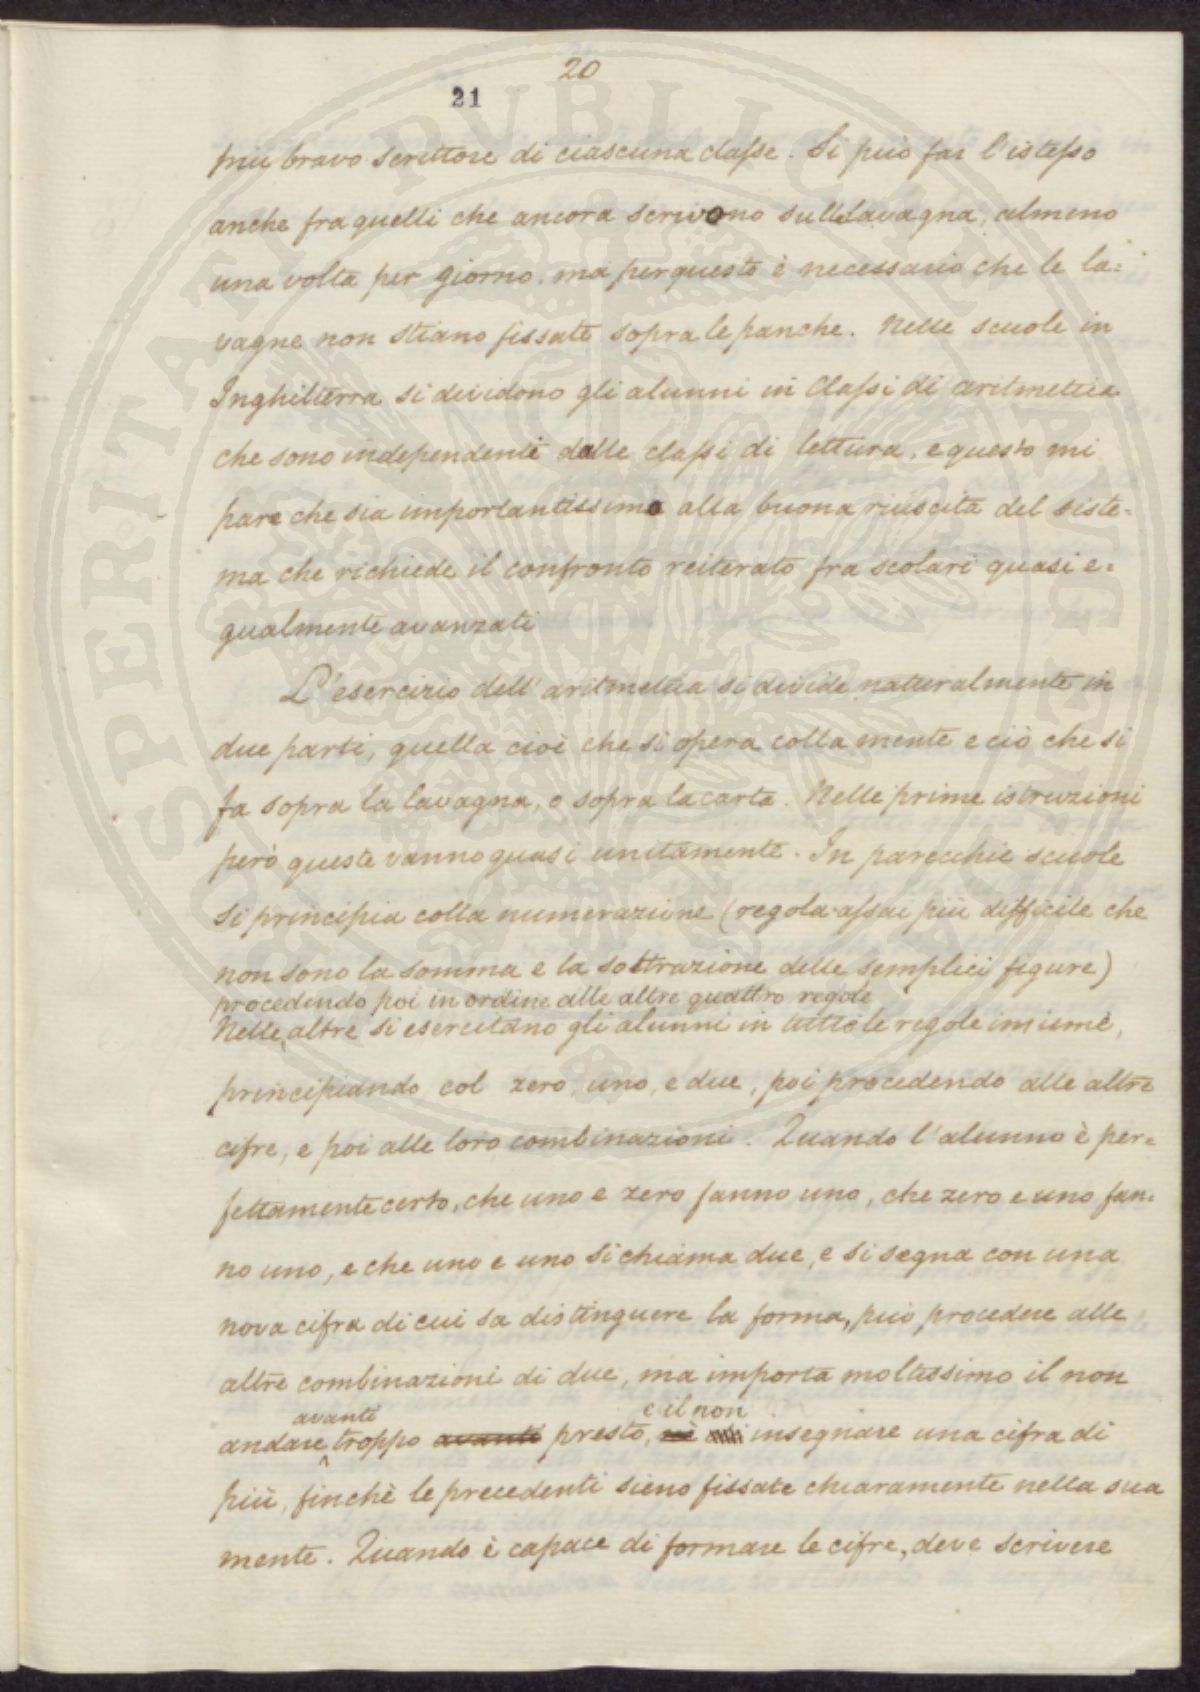 20
21
più bravo scrittore di ciascuna classe. Si può far l'istesso
anche fra quelli che ancora scrivono sulla lavagna, almeno
una volta per giorno. ma per questo è necessario che le la=
vagne non stiano fissate sopra le panche. Nelle scuole in
Inghilterra si dividono gli alunni in Classi di aritmetica
che sono independenti dalle classi di lettura, e questo mi
pare che sia importantissimo alla buona riuscita del siste=
ma che richiede il confronto reiterato fra scolari quasi e=
gualmente avanzati
L'esercizio dell'aritmetica si divide naturalmente in
due parti, quella cioè che si opera colla mente e ciò che si
fa sopra la lavagna, o sopra la carta. Nelle prime istruzioni
però queste vanno quasi unitamente. In parecchie scuole
si principia colla numerazione (regola assai più difficile che
non sono la somma e la sottrazione delle semplici figure)
procedendo poi in ordine alle altre quattro regole
Nelle altre si esercitano gli alunni in tutte le regole insieme,
principiando col zero, uno, e due, poi procedendo alle altre
cifre, e poi alle loro combinazioni. Quando l'alunno è per=
fettamente certo, che uno e zero fanno uno, che zero e uno fan=
no uno, e che uno e uno si chiama due, e si segna con una
nova cifra di cui sa distinguere la forma, può procedere alle
altre combinazioni di due, ma importa moltissimo il non
avanti e il non
andare troppo avanti presto, nè insegnare una cifra di
più, finchè le precedenti sieno fissate chiaramente nella sua
mente. Quando è capace di formare le cifre, deve scrivere
PROSPERITATI PVBLICAE AVGENDAE